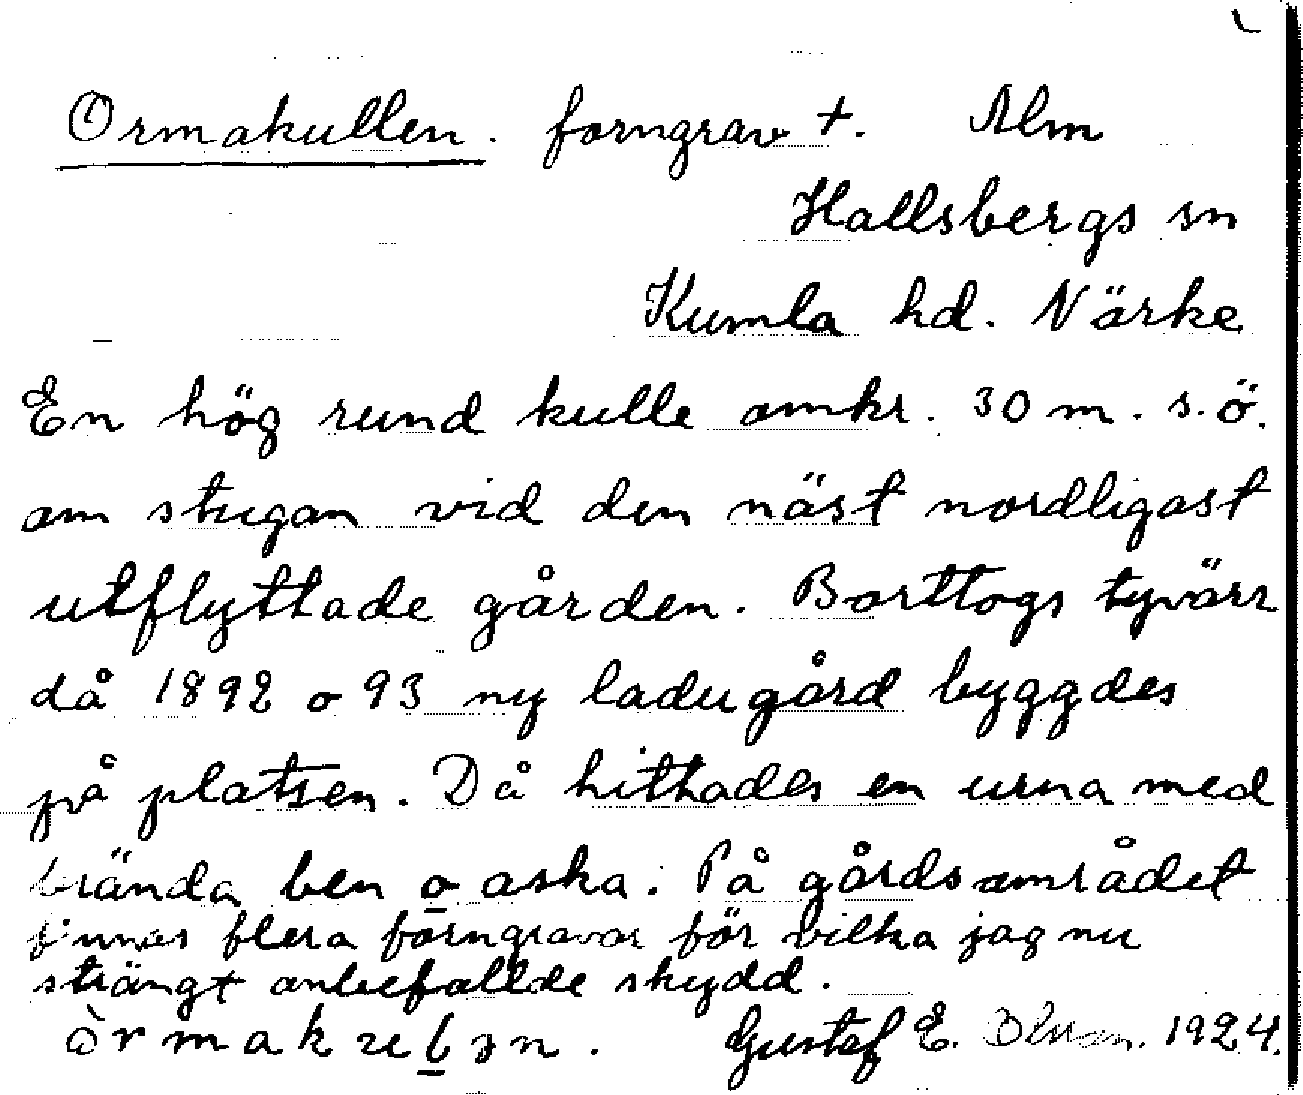 Ormakullen. forngrav +. Alm
Hallsbergs sn
Kumla hd. Närke
En hög rund kulle omkr. 30 m. s.ö.
om stugan vid den näst nordligast
utflyttade gården. Borttogs tyvärr
då 1892 o 93 ny ladugård byggdes
på platsen. Då hittades en urna med
brända ben o aska. På gårdsområdet
finnes flera forngravar för vilka jag nu
strängt anbefallde skydd.
Gustaf E. 1924.